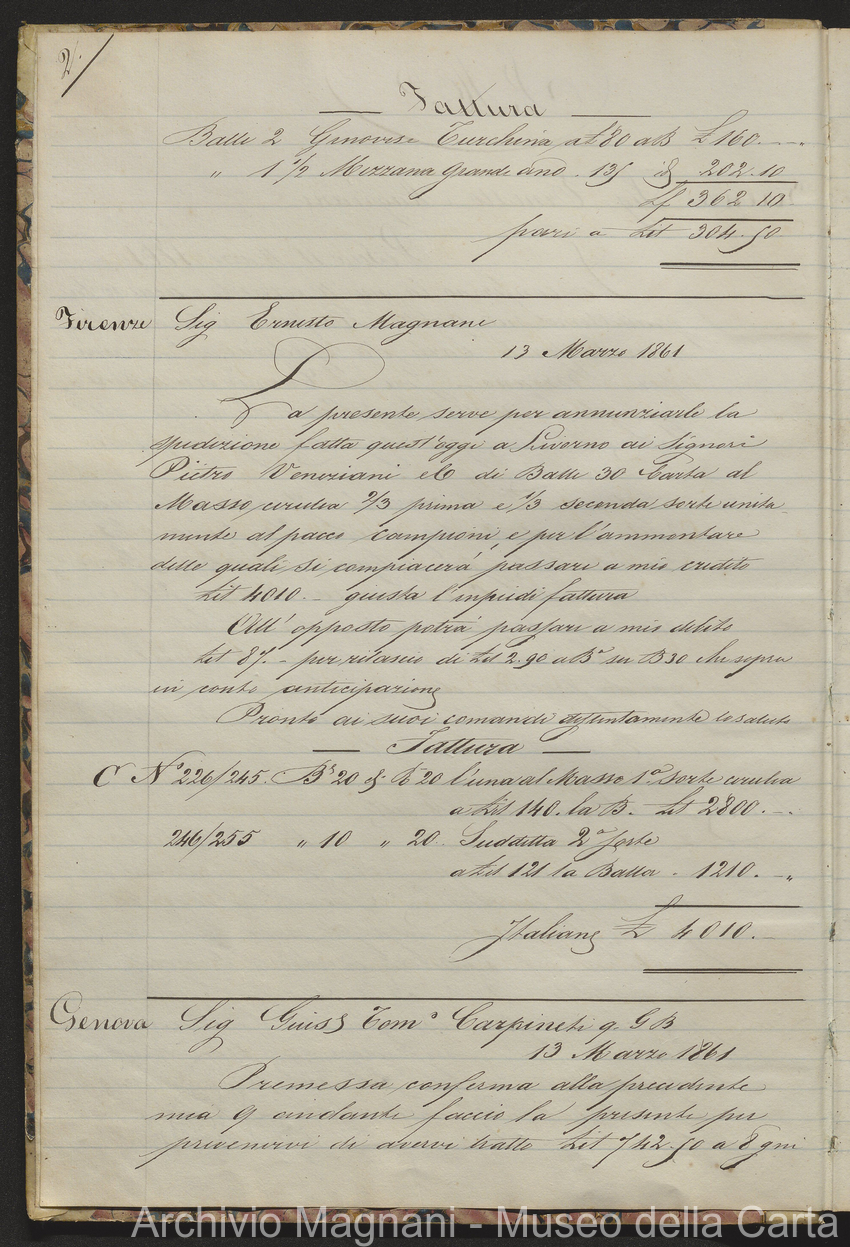 2/
Fattura
Balle 2 Genovese Turchina a £ 80 a B £ 160. - "
" 1 1/2 Mezzana grande and. 135 id 202.10
Lf 362 10
pari a Lit 304.50
Firenze Sig Ernesto Magnani
13 Marzo 1861
La presente serve per annunziarle la
spedizione fatta quest'oggi a Livorno ai Signori
Pietro Veneziani e C di Balle 30 Carta al
Masso cerulea 2/3 prima e 1/3 seconda sorte unita
mente al pacco campioni, e per l'ammontare
delle quali si compiacerà passare a mio credito
Lit 4010. - giusta l'inpiedi fattura
All' opposto potrà passare a mio debito
Lit 87. - per rilascio di Lit 2.90 a Ba su B 30 che sopra
in conto anticipazione
Pronto ai suoi comandi distintamente lo saluto
Fattura
C No 226/245. Bs 20 di R 20 l'una al Masso 1a Sorte cerulea
a Lit 140. la B. Lit 2800. - .
246/255 " 10 " 20 Suddetta 2a sorte
a Lit 121 la Balla . 1210. - "
Italiane £ 4010. -
Genova Sig Gius Tomo Carpineti q. GB
13 Marzo 1861
Premessa conferma alla precedente
mia 9 andante faccio la presente per
prevenirvi di avervi tratto Lit 742.50 a 8 gni
Archivio Magnani - Museo della Carta